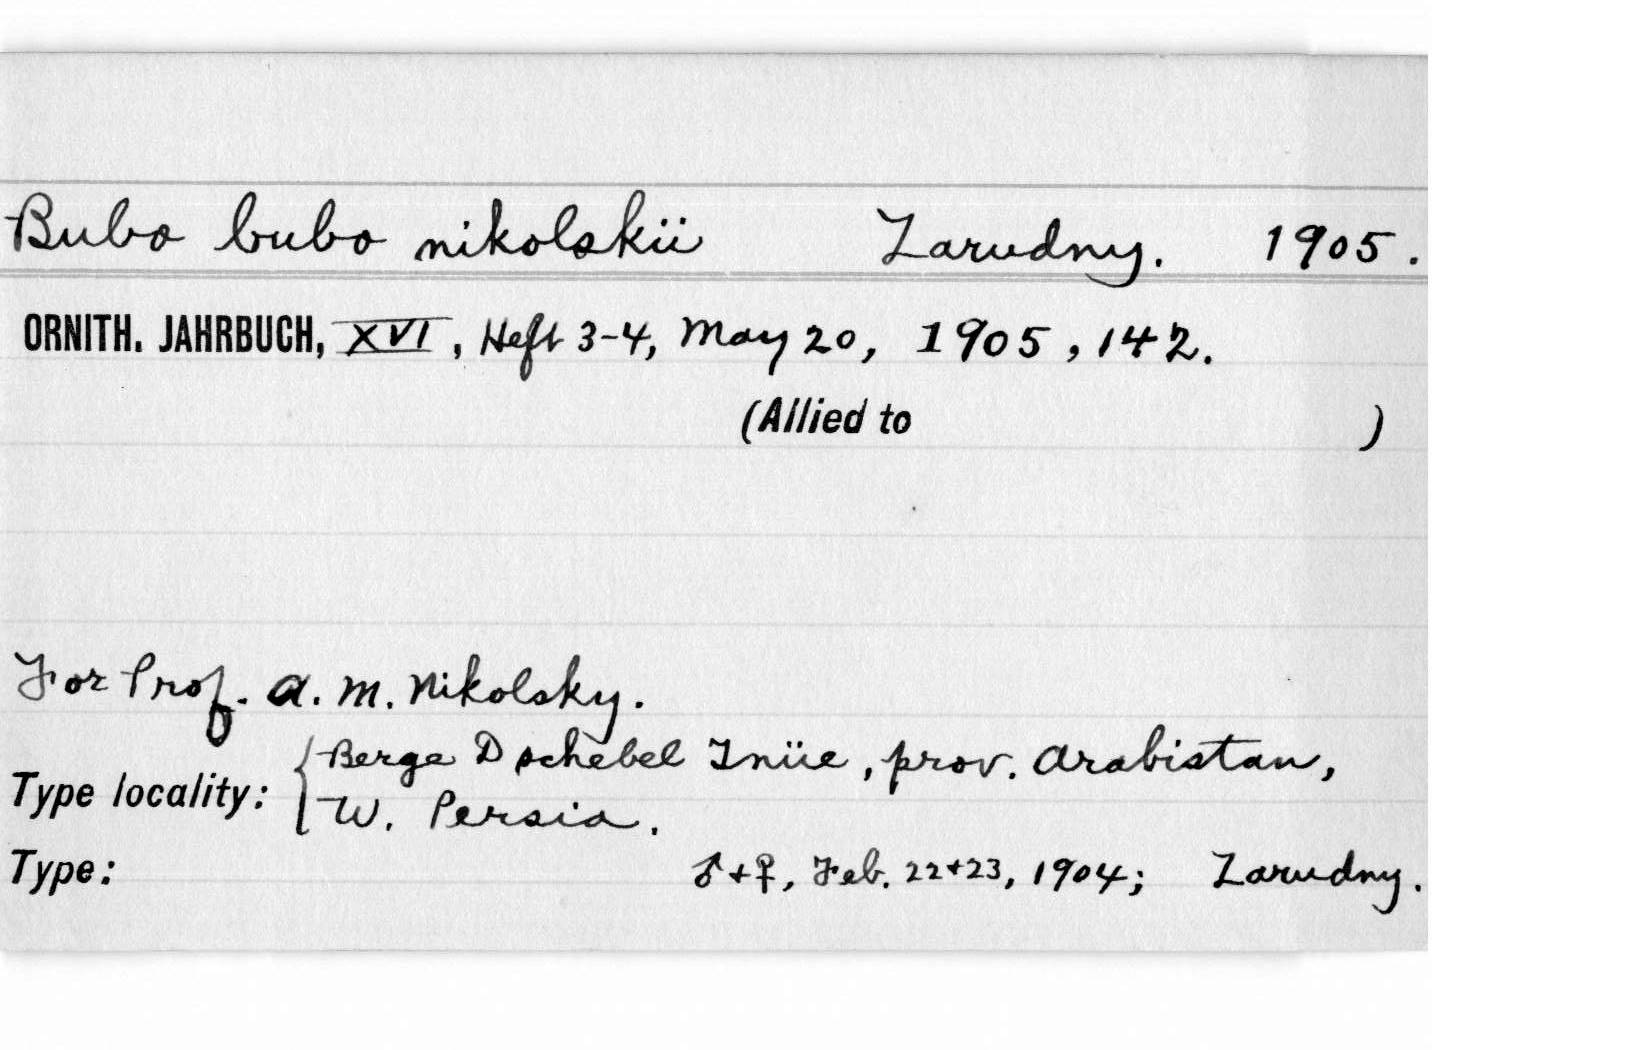 Bubo bubo nikolskii Zarudny. 1905.
ORNITH. JAHRBUCH, XVI, Heft 3-4, May 20, 1905, 142.
(Allied to )
For Prof. A. M. Nikolsky.
Type locality: { Berge Dschebel Tnüe, prov. Arabistan,
W. Persia.
Type: ♂+♀, Feb. 22+23, 1904; Zarudny.